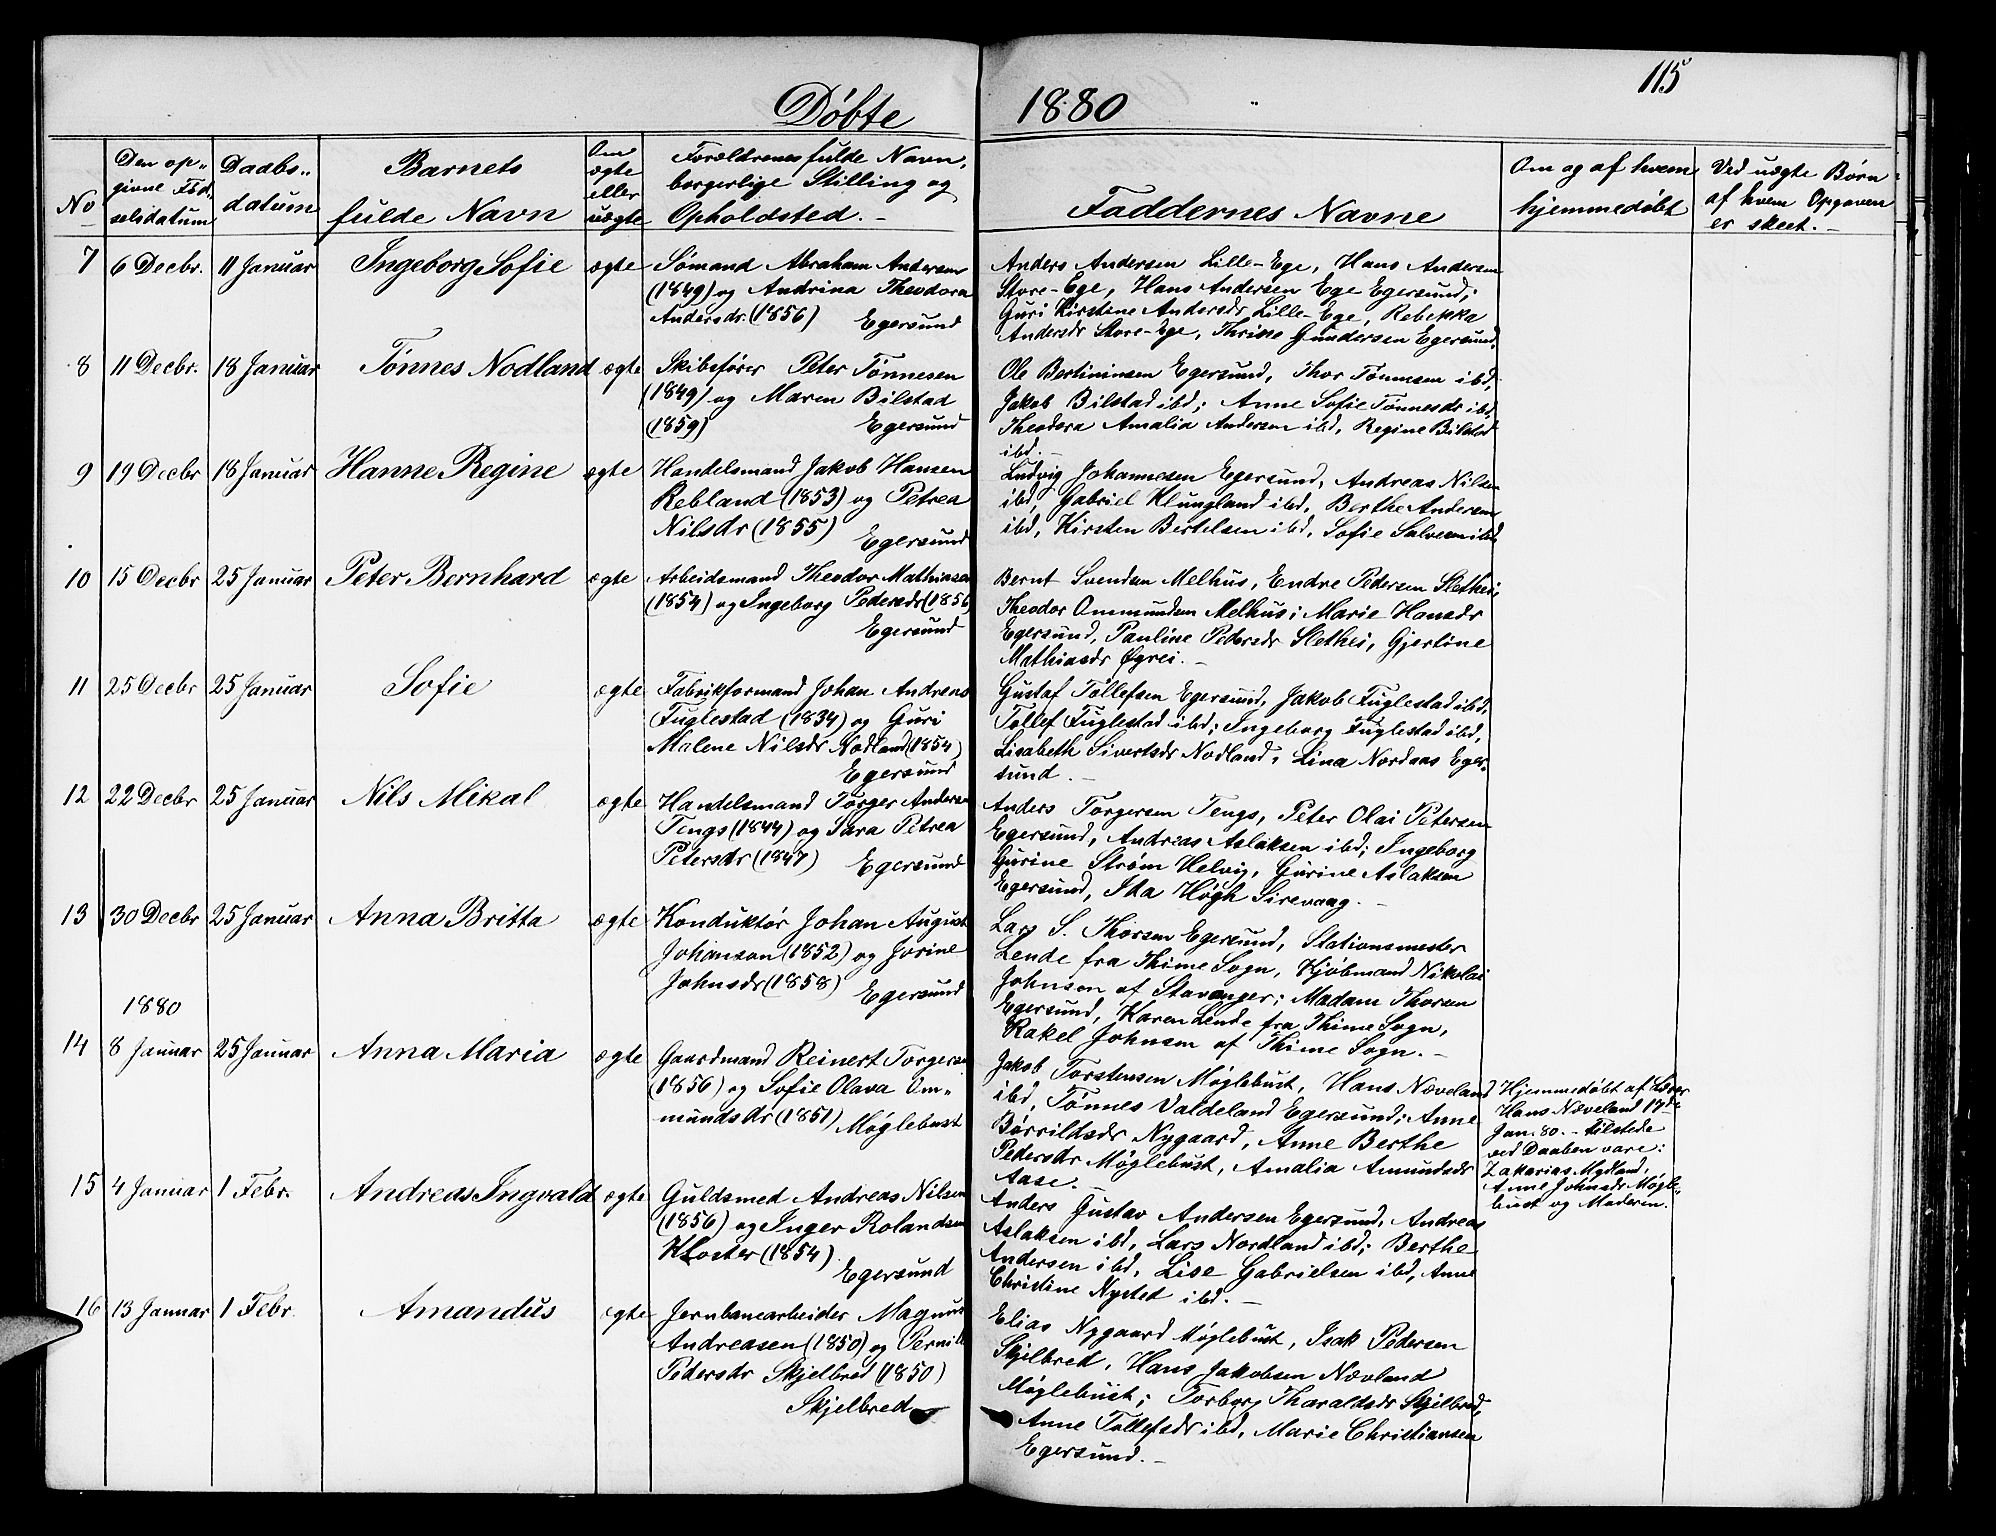 115
Døbte 1880
No
Den op-
givne Fød-
selsdatum
Daabs-
datum
Barnets
fulde Navn
Om
ægte
eller
uægte
Forældrenes fulde Navn,
borgerlige Stilling og
Opholdsted.
Faddernes Navne
Om og af hvem
hjemmedøbt
Ved uægte Børn
af hvem Opgaven
er skeet.
7 6 Decbr. 11 Januar Ingeborg Sofie ægte
Sømand Abraham Andersen
(1849) og Andrina Theodora
Andersdr. (1856) Egersund
Anders Andersen Lille-Ege, Hans Andersen
Store-Ege, Hans Andersen Ege Egersund;
Guri Kirstene Andersdr Lille-Ege, Rebekka
Andersdr Store-Ege, Thrine Gundersen Egersund.
8 11 Decbr. 18 Januar Tønnes Nodland ægte
Skibsfører Peter Tønnesen
(1849) og Maren Bilstad
(1859) Egersund
Ole Bertininsen Egersund, Thor Tønnesen ibd,
Jakob Bilstad ibd; Anne Sofie Tønnesdr ibd,
Theodora Amalia Andersen ibd, Regine Bilstad
ibd.
9 19 Decbr 18 Januar Hanne Regine ægte
Handelsmand Jakob Hansen
Rebland (1853) og Petrea
Nilsdr (1855) Egersund
Ludvig Johannesen Egersund, Andreas Nilsen
ibd, Gabriel Klungland ibd, Berthe Andersen
ibd, Kirsten Bertelsen ibd, Sofie Salvesen ibd
10 15 Decbr 25 Januar Peter Bernhard ægte
Arbeidsmand Theodor Mathiasen
(1854) og Ingeborg Pedersdr (1856)
Egersund
Bernt Svendsen Melhus, Endre Pedersen Slethei,
Theodor Ommundsen Melhus; Marie Hansdr
Egersund, Pauline Pedersdr Slethei, Gjertine
Mathiasdr Øgrei.
11 25 Decbr 25 Januar Sofie ægte
Fabrikformand Johan Andreas
Fuglestad (1834) og Guri
Malene Nilsdr Nodland (1854)
Egersund
Gustaf Tollefsen Egersund, Jakob Fuglestad ibd,
Tollef Fuglestad ibd; Ingeborg Fuglestad ibd,
Lisabeth Sivertsdr Nodland, Lina Nordaas Eger-
sund.
12 22 Decbr 25 Januar Nils Mikal ægte
Handelsmand Torger Andersen
Tengs (1844) og Sara Petrea
Petersdr (1847) Egersund
Anders Torgersen Tengs, Peter Olai Petersen
Egersund, Andreas Aslaksen ibd; Ingeborg
Gurine Strøm Helvig, Gurine Aslaksen
Egersund, Ika Høgh Sirevaag.
13 30 Decbr 25 Januar Anna Britta ægte
Konduktør Johan August
Johanson (1852) og Jorine
Johnsdr (1858) Egersund
Lars S. Thorsen Egersund, Stationsmester
Lende fra Thime Sogn, Kjøbmand Nikolai
Johnsen af Stavanger; Madam Thorsen
Egersund, Karen Lende fra Thime Sogn,
Rakel Johnsen af Thime Sogn.
1880
14 8 Januar 25 Januar Anna Maria ægte
Gaardmand Reinert Torgersen
(1856) og Sofie Olava Om-
mundsdr (1851) Møglebust
Jakob Torstensen Møglebust, Hans Næveland
ibd, Tønnes Valdeland Egersund; Anne
Børrildsdr Nygaard, Anne Berthe
Pedersdr Møglebust, Amalia Amundsdr
Aase.
Hjemmedøbt af Lærer
Hans Næveland 17de
Jan. 80. - tilstede
ved Daaben vare:
Zakarias Mydland,
Anne Johnsdr Møgle-
bust og Moderen.
15 4 Januar 1 Febr. Andreas Ingvald ægte
Guldsmed Andreas Nilsen
(1856) og Inger Rolandsen
Kloster (1854)
Egersund
Anders Gustav Andersen Egersund, Andreas
Aslaksen ibd, Lars Nordland ibd; Berthe
Andersen ibd, Lise Gabrielsen ibd, Anne
Christine Nysted ibd.
16 13 Januar 1 Febr. Amandus ægte
Jernbanearbeider Magnus
Andreasen (1850) og Pernille
Pedersdr Skjelbred (1850)
Skjelbred
Elias Nygaard Møglebust, Isak Pedersen
Skjelbred, Hans Jakobsen Næveland
Møglebust; Torborg Tharaldsdr Skjelbred,
Anne Tollefsdr ibd, Marie Christiansen
Egersund.